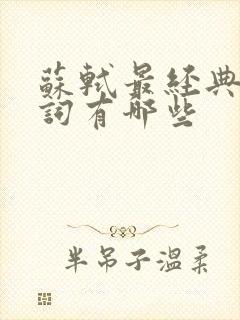 蘇軾最經典
詞有哪些
半吊子溫柔